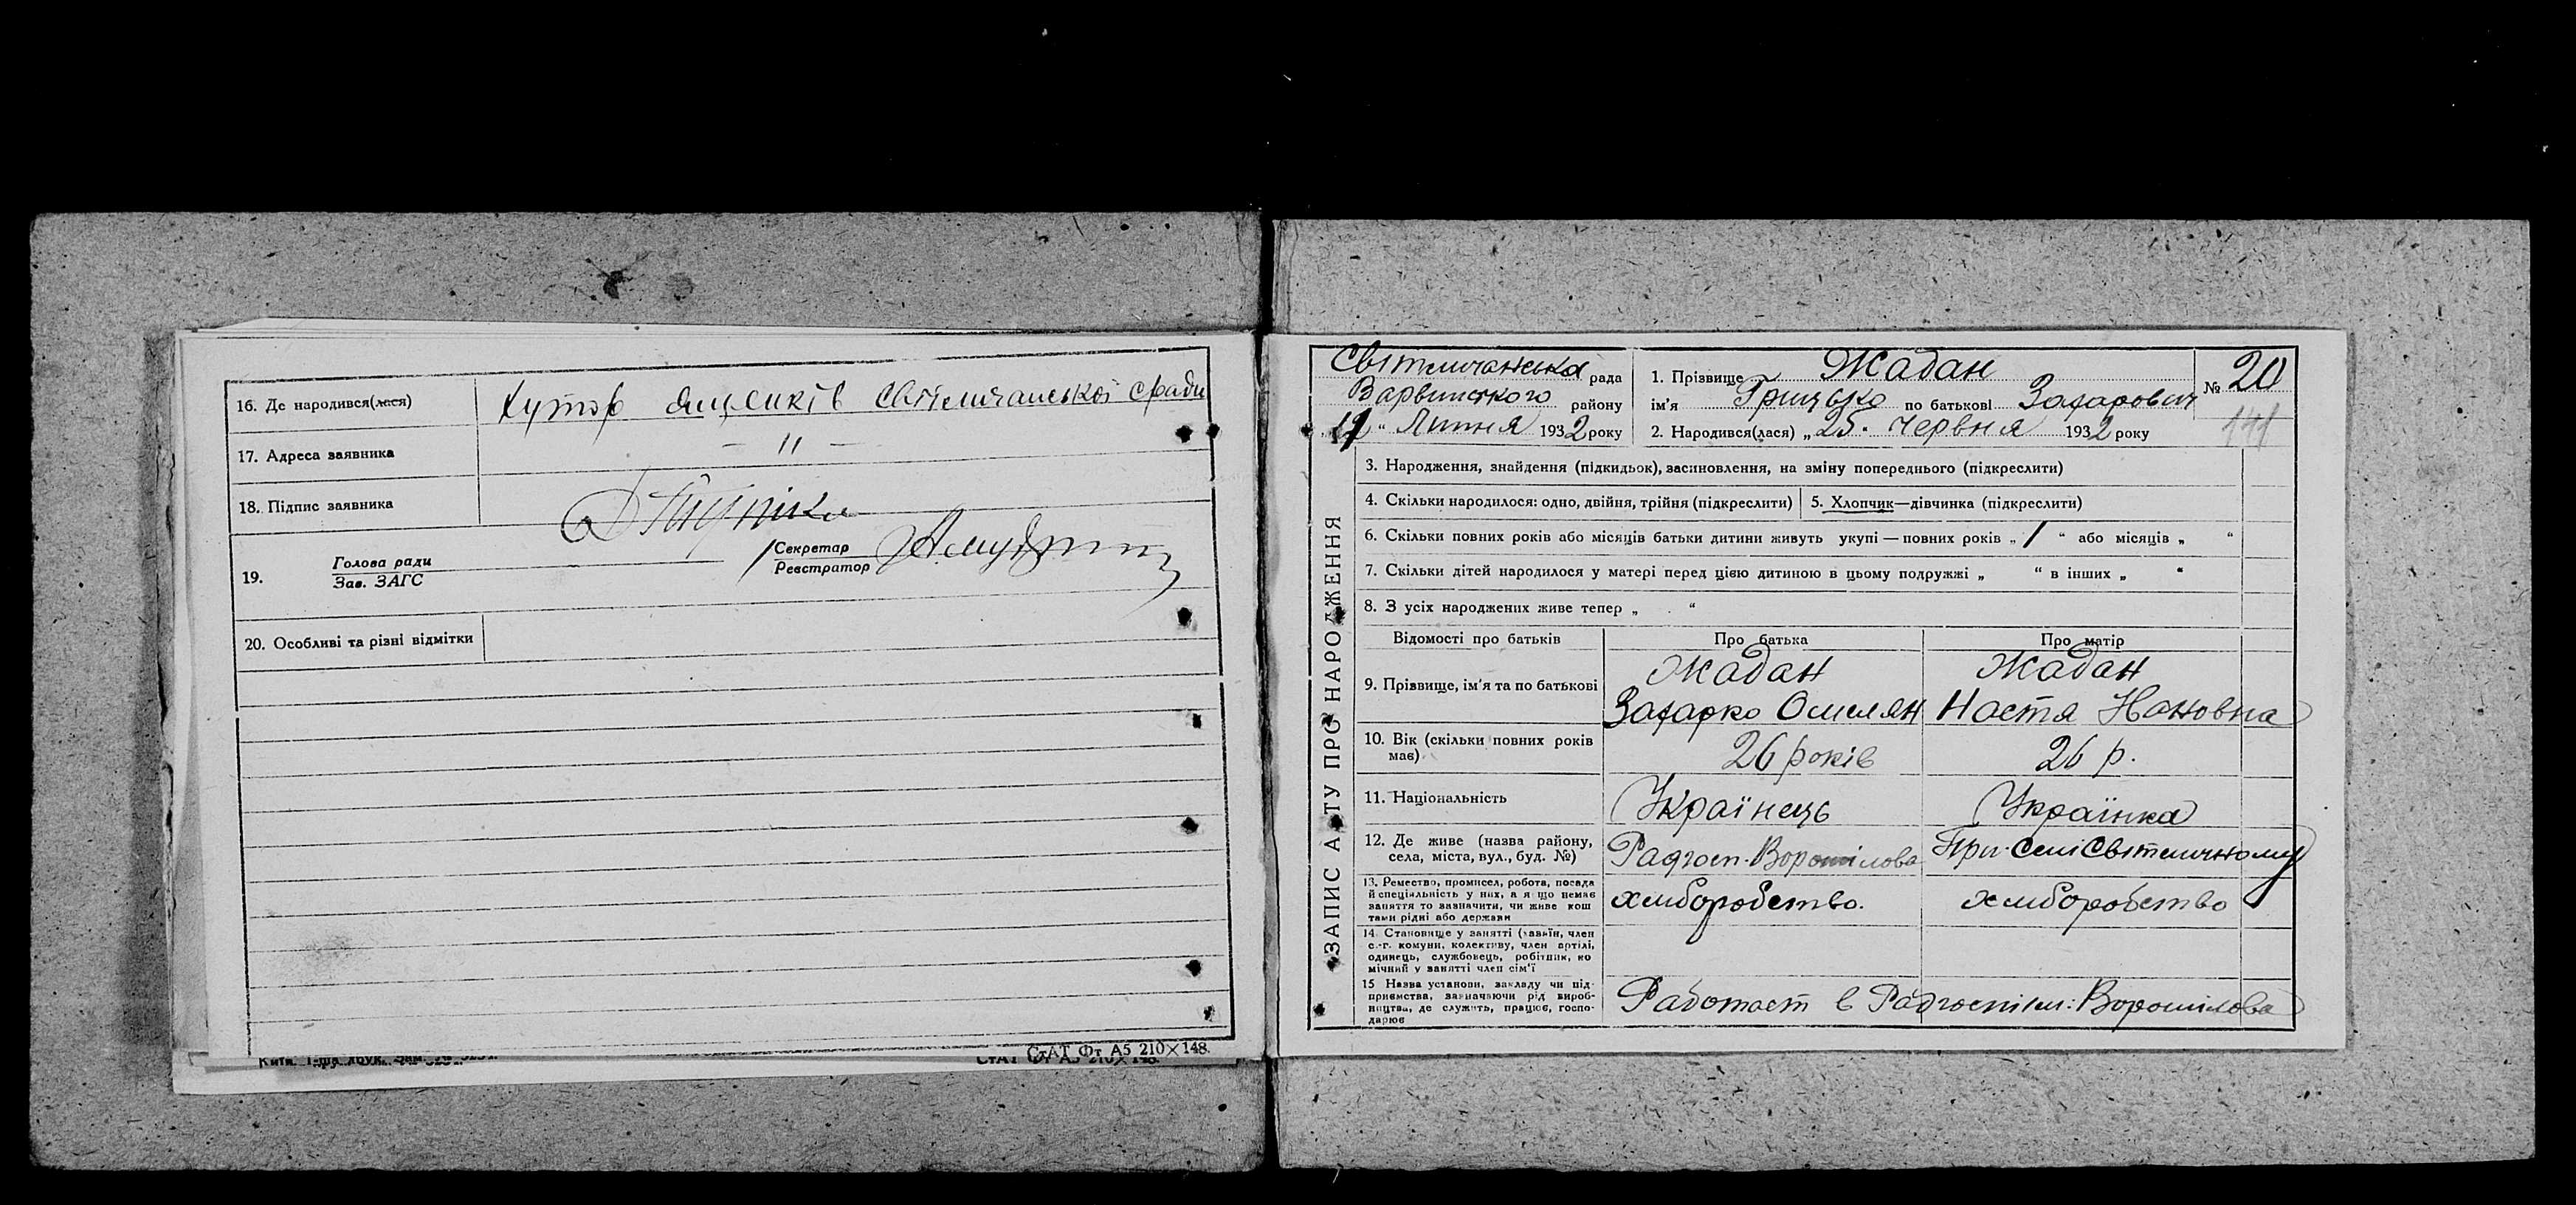 16. Де народився(лася) хутор Ящиків Світличанської с/ради
17. Адреса заявника — " —
18. Підпис заявника
19. Голова ради
Зав. ЗАГС
Секретар
Реєстратор
20. Особливі та різні відмітки
СтАТ Фт А5 210×148.
ЗАПИС АКТУ ПРО НАРОДЖЕННЯ
Світличанська рада
Варвинського району
19 " Липня 1932 року
1. Прізвище Жадан
ім'я Грицько по батькові Захарович
№ 20
141
2. Народився(лася) „25. червня 1932 року
3. Народження, знайдення (підкидьок), засиновлення, на зміну попереднього (підкреслити)
4. Скільки народилося: одно, двійня, трійня (підкреслити) 5. Хлопчик—дівчинка (підкреслити)
6. Скільки повних років або місяців батьки дитини живуть укупі — повних років „ 1 “ або місяців „ “
7. Скільки дітей народилося у матері перед цією дитиною в цьому подружжі „ “ в інших „ “
8. З усіх народжених живе тепер „ “
Відомості про батьків Про батька Про матір
9. Прізвище, ім'я та по батькові
Жадан Захарко Омелян
Жадан Настя
10. Вік (скільки повних років має) 26 років 26 р.
11. Національність Українець Українка
12. Де живе (назва району, села, міста, вул., буд. №) Радгосп. Ворошілова При селі Світличному
13. Ремество, промисел, робота, посада й спеціальність у них, а якщо немає заняття то зазначити, чи живе кош тами рідні або держави
хліборобство. хліборобство
14. Становище у занятті (хазяїн, член с.-г. комуни, колективу, член артілі, одинець, службовець, робітник, по мічний у занятті член сім'ї
15 Назва установи, закладу чи під- приємства, зазначаючи рід вироб- ництва, де служить, працює, госпо- дарює
Работает в Радгоспі ім: Ворошілова